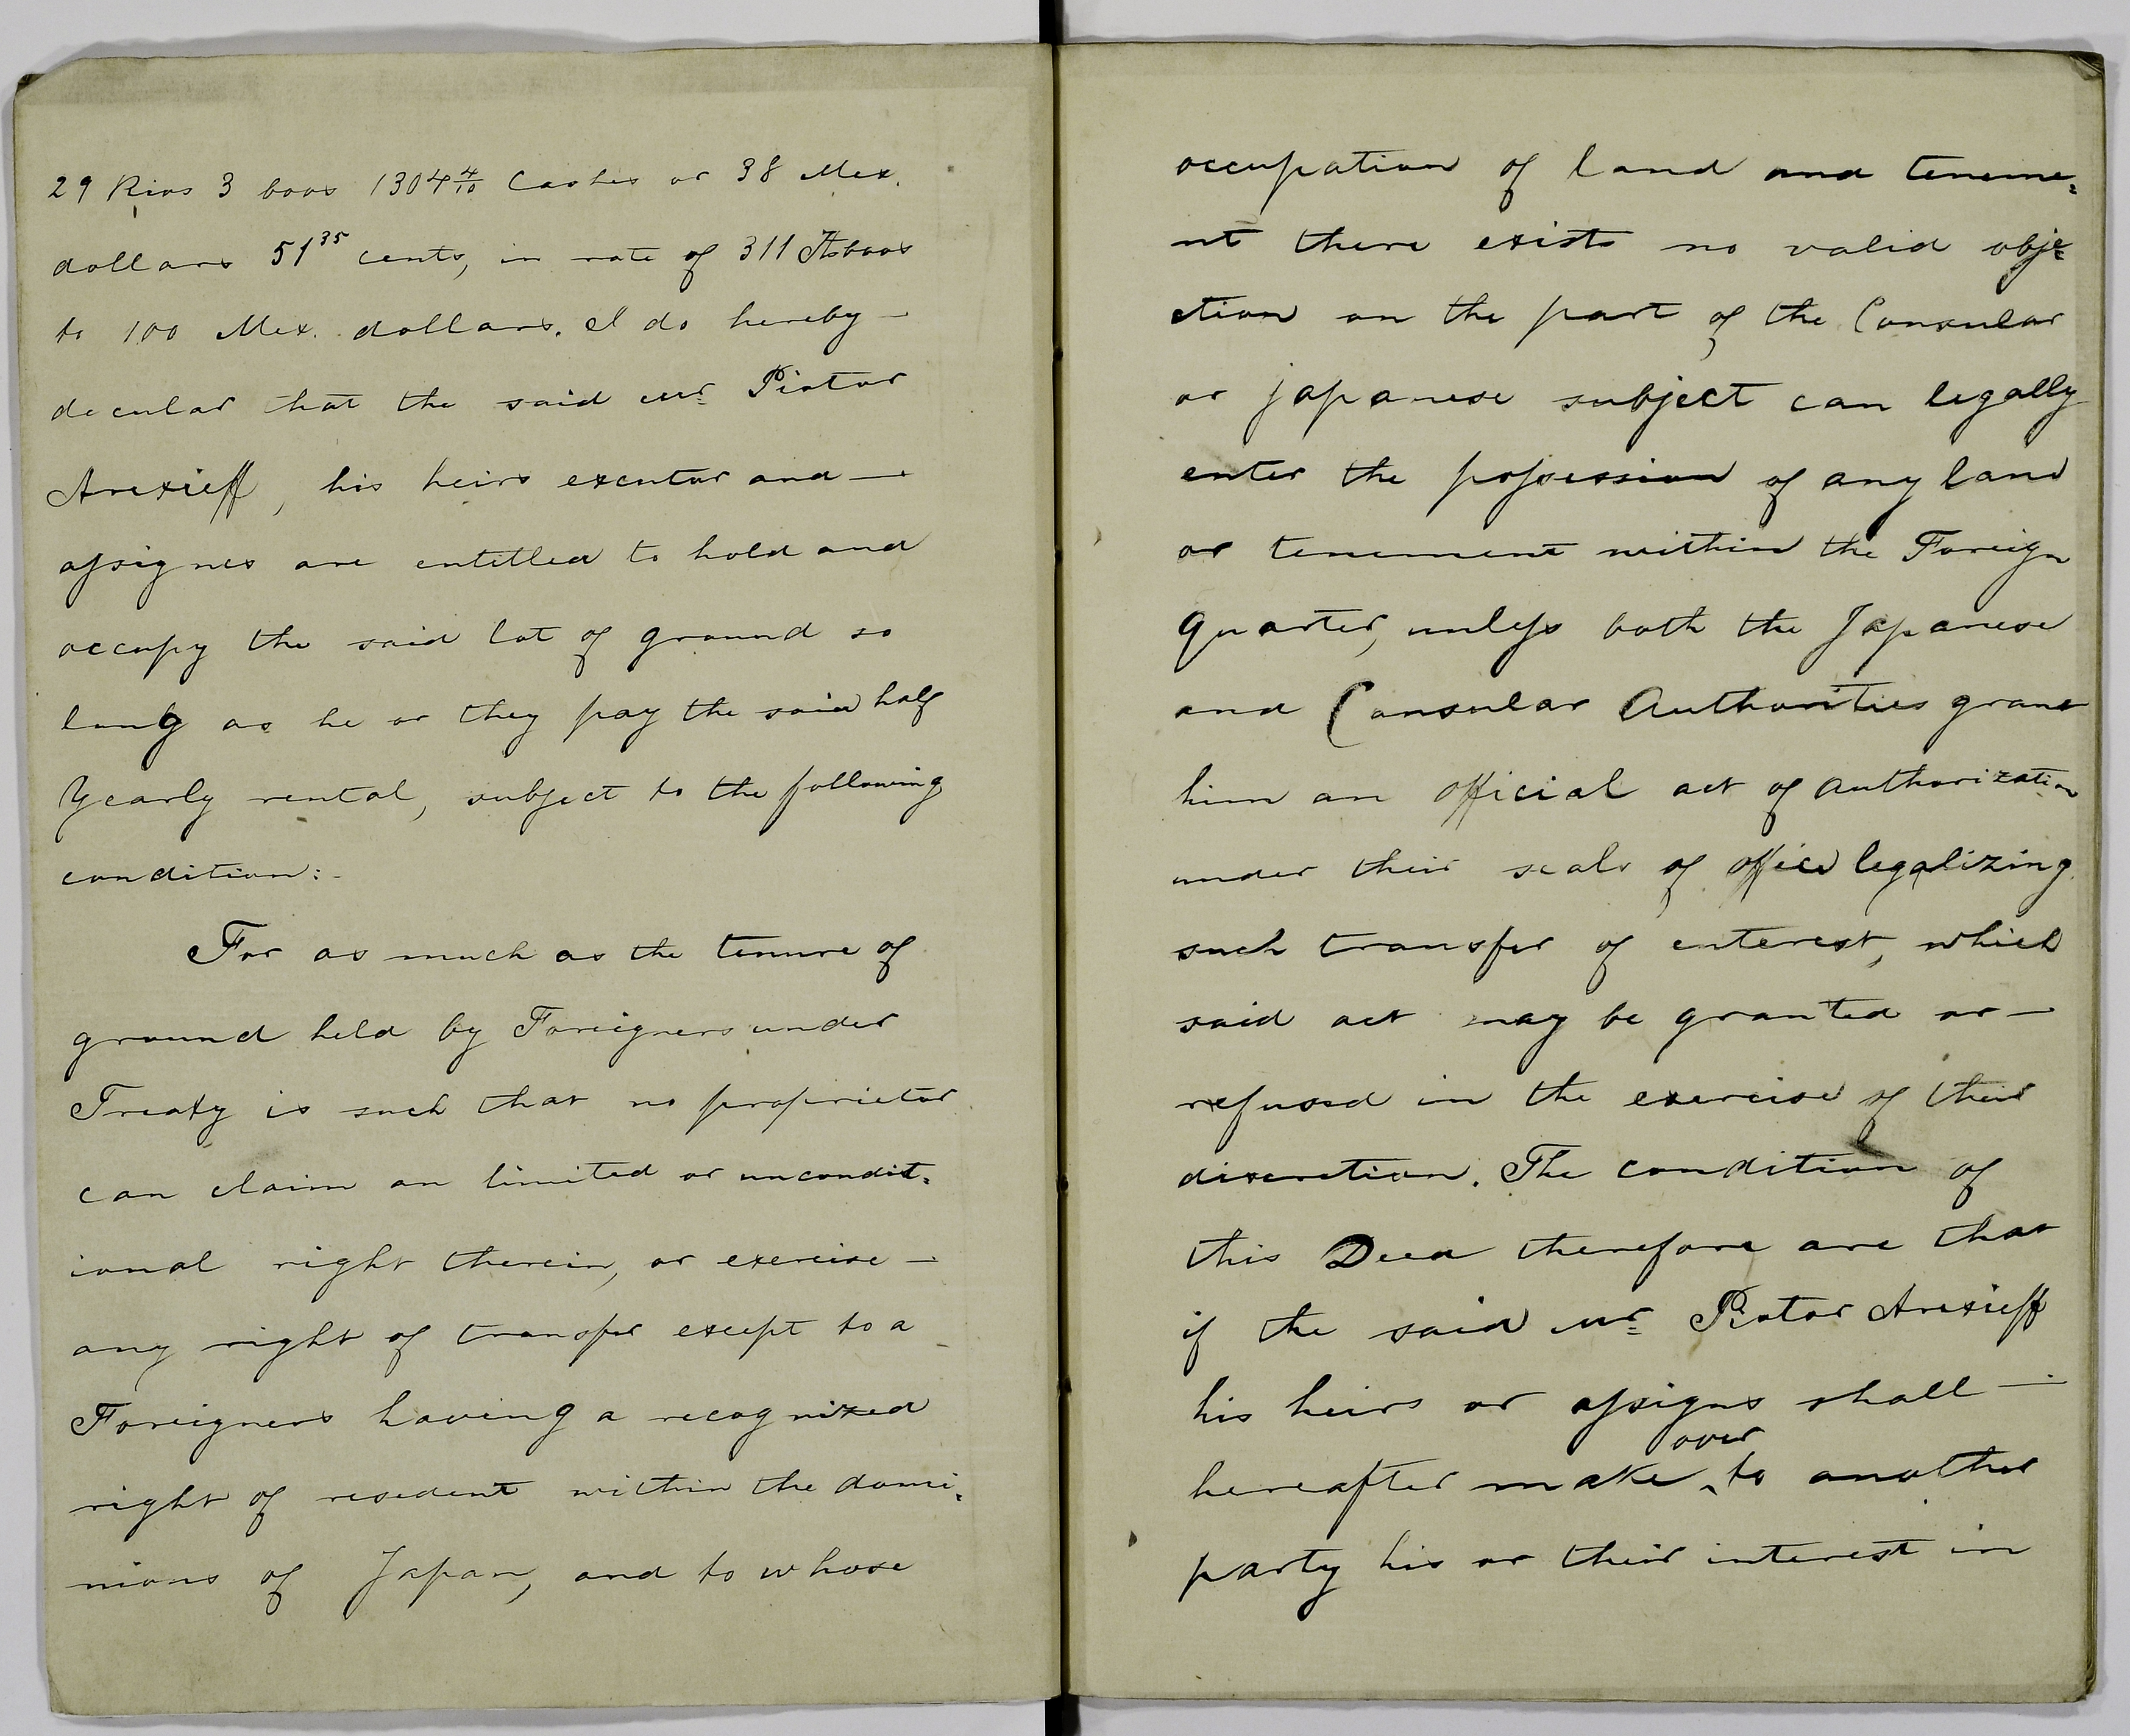 29 Rios 3 boos 1304 4/10 Cashes or 38 Mex.
dollars 51 35 cents, in rate of 311 Itsboos
to 100 Mex. dollars. I do hereby —
decular that the said Mr. Piotor
Arexieff, his heirs executor and —
assignes are entitled to hold and
occupy the said lot of ground so
long as he or they pay the said half
Yearly rental, subject to the following
condition:-
For as much as the tenure of
ground held by Foreigners under
Treaty is such that no proprietor
can claim an limited or uncondit=
ional right therein, or exercise —
any right of transfer except to a
Foreigners having a recognized
right of resedent within the domi=
nions of Japan, and to whose
occupation of land and teneme=
nt there exists no valid obje=
ction on the part of the Consular
or japanese subject can legally
enter the possession of any land
or tenement within the Foreign
Quarter, unless both the Japanese
and Consular Authorities grant
him an official act of authorization
under their seals of office legalizing
such transfer of enterest, which
said act may be granted or —
refused in the exercise of their
discretion. The condition of
this Deed therefore are that
if the said Mr. Piotor Arexieff
his heirs or assigns shall —
hereafter make over to another
party his or their interest in